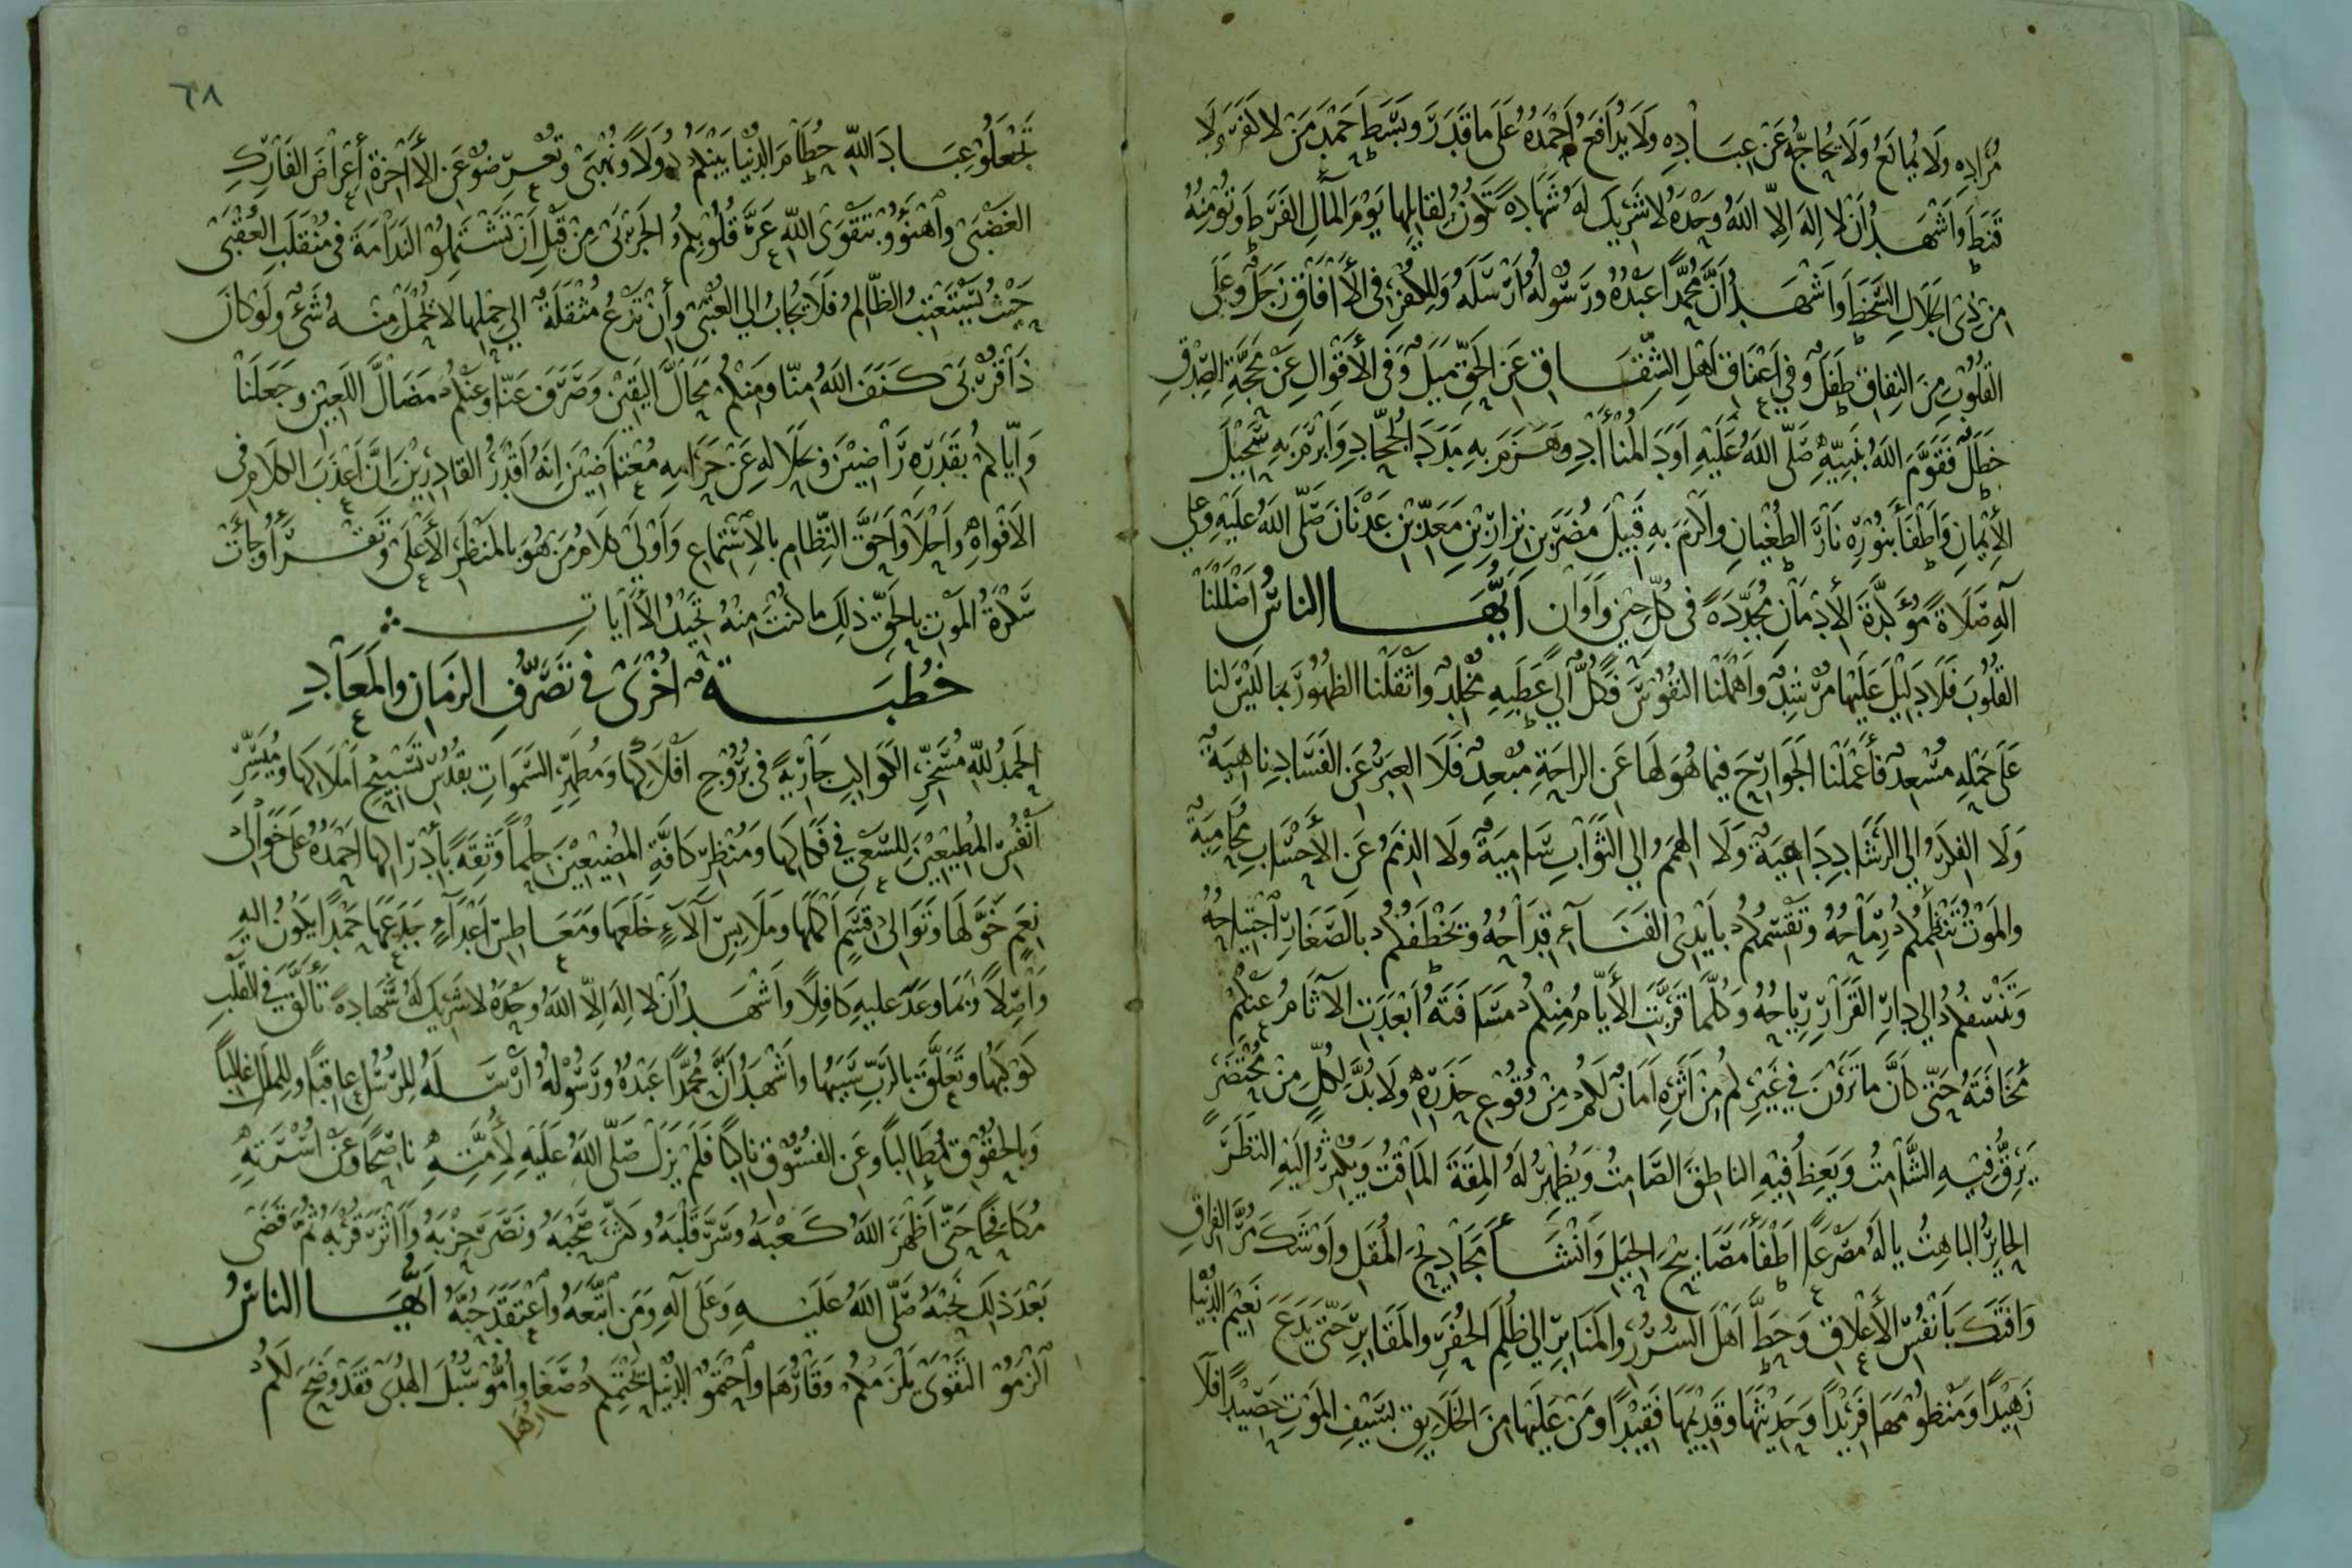 مُرَادِهِ وَلَا يُمَانَعُ وَلَا يُحَاجُّ عَنْ عِبَادِهِ وَلَا يُدَافَعُ أَحْمَدُهُ عَلَى مَا قَدَرَ وَبَسَطَ حَمْدَ مَنْ لَا كَفَرَ وَلَا
قَنَطَ وَأَشْهَدُ أَنْ لَا إِلَهَ إِلَّا اللهُ وَحْدَهُ لَا شَرِيكَ لَهُ شَهَادَةً تَكُونُ لِقَائِلِهَا يَوْمَ الْمَآلِ الْفَرَطَ وَتُؤْمِنُهُ
مِنْ ذِي الْجَلَالِ السَّخَطَ وَأَشْهَدُ أَنَّ مُحَمَّدًا عَبْدُهُ وَرَسُولُهُ أَرْسَلَهُ وَلِلْكُفْرِ فِي الْآفَاقِ زَجَلٌ وَعَلَى
الْقُلُوبِ مِنَ النِّفَاقِ طَفَلٌ وَفِي أَعْنَاقِ أَهْلِ الشِّقَاقِ عَنِ الْحَقِّ مَيَلٌ وَفِي الْأَقْوَالِ عَنْ مَحَجَّةِ الصِّدْقِ
خَطَلٌ فَقَوَّمَ اللهُ بِنَبِيِّهِ صَلَّى اللهُ عَلَيْهِ أَوَدَ الْمُنْآدِ وَهَزَمَ بِهِ مَدَدَ الْحُجَّادِ وَأَبْرَمَ بِهِ سَحِيلَ
الْإِيْمَانِ وَأَطْفَأَ بِنُوْرِهِ نَارَ الطُّغْيَانِ وَأَكْرَمَ بِهِ قَبِيْلَ مُضَرَ بْنِ نِزَارِ بْنِ مَعَدِّ بْنِ عَدْنَانَ صَلَّى اللهُ عَلَيْهِ وَعَلَى
آلِهِ صَلَاةً مُؤَكَّدَةَ الْأَدْمَانِ مُجَدَّدَةً فِي كُلِّ حِيْنٍ وَأَوَانٍ أَيُّهَا النَّاسُ أَضْلَلْنَا
الْقُلُوبَ فَلَا دَلِيْلَ عَلَيْهَا مُرْشِدٌ وَأَهْمَلْنَا النُّفُوْسَ فَكُلٌّ إِلَى عَطَبِهِ مُخْلِدٌ وَأَثْقَلْنَا الظُّهُوْرَ بِمَا لَيْسَ لَنَا
عَلَى حَمْلِهِ مُسْعِدٌ فَأَعْمَلْنَا الْجَوَارِحَ فِيمَا هُوَ لَهَا عَنِ الرَّاحَةِ مُبْعِدٌ فَلَا الْعِبَرُ عَنِ الْفَسَادِ نَاهِيَةٌ
وَلَا الْفِكَرُ إِلَى الرَّشَادِ دَاهِيَةٌ وَلَا الْهِمَمُ إِلَى الثَّوَابِ سَامِيَةٌ وَلَا الذِّمَمُ عَنِ الْأَحْسَابِ مُحَامِيَةٌ
وَالْمَوْتُ تَنْظِمُكُمْ رِمَاحُهُ وَتَقْسِمُكُمْ بِأَيْدِي الْفَنَاءِ قِدَاحُهُ وَتَخْطَفُكُمْ بِالصَّغَارِ اجْتِيَاحُهُ
وَتَنْسِفُكُمْ إِلَى دَارِ الْقَرَارِ رِيَاحُهُ وَكُلَّمَا قَرَّبَتِ الْأَيَّامُ مِنْكُمْ مَسَافَتَهُ أَبْعَدَتِ الْآثَامُ عَنْكُمْ
مَخَافَتَهُ حَتَّى كَأَنَّ مَا تَرَوْنَ فِي غَيْرِكُمْ مِنْ أَثَرِهِ أَمَانٌ لَكُمْ مِنْ وُقُوْعِ حَذَرِهِ وَلَا بُدَّ لِكُلٍّ مِنْ مُحْتَضَرٍ
يَرِقُّ فِيْهِ الشَّامِتُ وَيَعِظُ فِيْهِ النَّاطِقَ الصَّامِتُ وَيُظْهِرُ لَهُ الْمِقَةَ الْمَاقِتُ وَيُكْثِرُ إِلَيْهِ النَّظَرَ
الْحَايِرُ الْبَاهِتُ يَا لَهُ مَصْرَعًا أَطْفَأَ مَصَابِيْحَ الْحِيَلِ وَأَنْشَأَ مَجَادِيْحَ الْمُقَلِ وَأَوْشَكَ مُرَّ الْفِرَاقِ
وَافَتَكَ بِأَنْفُسِ الْأَعْلَاقِ وَحَطَّ أَهْلَ السُّرُرِ وَالْمَنَابِرِ إِلَى ظُلَمِ الْحُفَرِ وَالْمَقَابِرِ حَتَّى يَدَعَ نَعِيْمَ الدُّنْيَا
زَهِيْدًا وَمَنْظُوْمَهَا فَرِيْدًا وَحَدِيْثَهَا وَقَدِيْمَهَا فَقِيْدًا وَمَنْ عَلَيْهَا مِنَ الْخَلَايِقِ بِسَيْفِ الْمَوْتِ حَصِيْدًا فَلَا
٦٨
تَجْعَلُوْ عِبَادَ اللهِ حُطَامَ الدُّنْيَا بَيْنَكُمْ دُوَلًا وَنُهْبَى وَتُعْرِضُوْ عَنِ الْآخِرَةِ أَعْرَاضَ الْفَارِكِ
الْغَضْبَى وَاهْنَؤُوْ بِتَقْوَى اللهِ عَرَّ قُلُوْبِكُمُ الْجَرْبَى مِنْ قَبْلِ أَنْ تَشْتَمِلُوْ النَّدَامَةَ فِي مُنْقَلَبِ الْعُقْبَى
حَيْثُ يُسْتَعْتَبُ الظَّالِمُ فَلَا يُجَابُ إِلَى الْعُتْبَى وَأَنْ تَدْعُ مُثْقَلَةٌ إِلَى حِمْلِهَا لَا يُحْمَلْ مِنْهُ شَيْءٌ وَلَوْ كَانَ
ذَا قُرْبَى كَنَفَ اللهُ مِنَّا وَمِنْكُمْ مَحَالَّ الْيَقِيْنِ وَصَرَفَ عَنَّا وَعَنْكُمْ مَضَالَّ اللَّعِيْنِ وَجَعَلَنَا
وَإِيَّاكُمْ بِقَدَرِهِ رَاضِيْنَ وَبِحَلَالِهِ عَنْ حَرَامِهِ مُعْتَاضِيْنَ إِنَّهُ أَقْدَرُ الْقَادِرِيْنَ إِنَّ أَعْذَبَ الْكَلَامِ فِي
الْأَفْوَاهِ وَأَحْلَا وَأَحَقَّ النِّظَامِ بِالْاِسْتِمَاعِ وَأَوْلَى كَلَامُ مَنْ هُوَ بِالْمَنْظَرِ الْأَعْلَى وَتَقْرَأُ وَجَاءَتْ
سَكْرَةُ الْمَوْتِ بِالْحَقِّ ذَلِكَ مَا كُنْتَ مِنْهُ تَحِيْدُ الْآيَاتِ
خُطْبَةٌ أُخْرَى فِي تَصَرُّفِ الزَّمَانِ وَالْمَعَادِ
الْحَمْدُ لِلَّهِ مُسَخِّرِ الْكَوَاكِبِ جَارِيَةً فِي بُرُوْجِ أَفْلَاكِهَا وَمُطَهِّرِ السَّمَوَاتِ بِقُدْسِ تَسْبِيْحِ أَمْلَاكِهَا وَمُيَسِّرِ
أَنْفُسِ الْمُطِيْعِيْنَ لِلسَّعْيِ فِي فَكَاكِهَا وَمُنْظِرِ كَافَّةِ الْمُضِيْعِيْنَ حِلْمًا وَثِقَةً بِإِدْرَاكِهَا أَحْمَدُهُ عَلَى خَوَالِي
نِعَمٍ خَوَّلَهَا وَتَوَالِي قِسَمٍ أَكْمَلَهَا وَمَلَابِسِ آلَاءٍ خَلَعَهَا وَمَعَاطِسِ أَعْدَاءٍ جَدَعَهَا حَمْدًا يَكُوْنُ إِلَيْهِ
وَاصِلًا وَبِمَا وَعَدَ عَلَيْهِ كَافِلًا وَأَشْهَدُ أَنْ لَا إِلَهَ إِلَّا اللهُ وَحْدَهُ لَا شَرِيْكَ لَهُ شَهَادَةً تَأَلَّقَ فِي الْقَلْبِ
كَوْكَبُهَا وَتَعَلَّقَ بِالرَّبِّ سَبَبُهَا وَأَشْهَدُ أَنَّ مُحَمَّدًا عَبْدُهُ وَرَسُوْلُهُ أَرْسَلَهُ لِلرُّسُلِ عَاقِبًا وَلِلْمِلَلِ غَالِبًا
وَبِالْحُقُوْقِ مُطَالِبًا وَعَنِ الْفُسُوْقِ نَاكِبًا فَلَمْ يَزَلْ صَلَّى اللهُ عَلَيْهِ لِأُمَّتِهِ نَاصِحًا وَعَنْ أُسْرَتِهِ
مُكَافِحًا حَتَّى أَظْهَرَ اللهُ كَعْبَهُ وَسَرَّ قَلْبَهُ وَكَثَّرَ صَحْبَهُ وَنَصَرَ حِزْبَهُ وَآثَرَ قُرْبَهُ ثُمَّ قَضَى
بَعْدَ ذَلِكَ نَحْبَهُ صَلَّى اللهُ عَلَيْهِ وَعَلَى آلِهِ وَمَنِ اتَّبَعَهُ وَاعْتَقَدَ حُبَّهُ أَيُّهَا النَّاسُ
الْزَمُوْ التَّقْوَى يَلْزَمْكُمْ وَقَارُهَا وَاحْتَمُوْ الدُّنْيَا يَحْتَمِكُمْ صَغَا وَأُمُّوْ سُبُلَ الْهُدَى فَقَدْ وَضَحَ لَكُمْ
ارُهَا